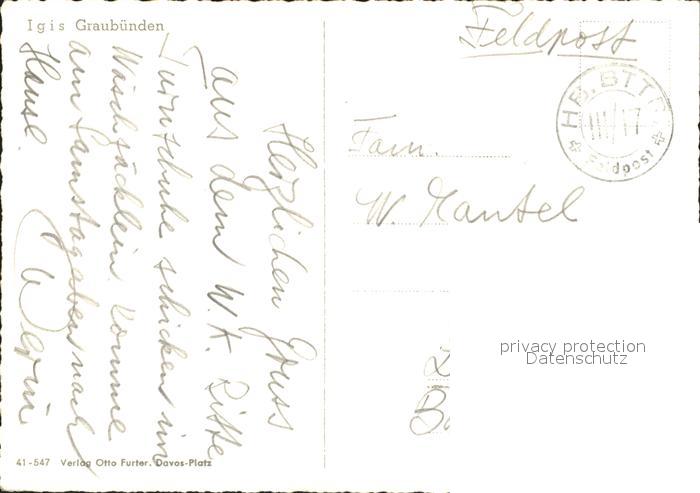 Igis Graubünden
Herzlichen Gruss
aus dem W.K. Bitte
Turnschuhe schicken im
Wäschsäcklein. Komme
am Samstagabend nach
Hause.
Werni
Feldpost
HB. BTTR.
III/17
Feldpost
Fam.
W. Mantel
privacy protection
Datenschutz
41-547 Verlag Otto Furter. Davos-Platz